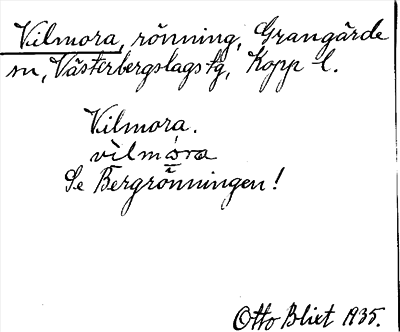 Vilmora, rönning, Grangärde
sn, Västerbergslags tg, Kopp. l.
Vilmora.
vìlmo̱ra
Se Bergrönningen!
Otto Blixt 1935.